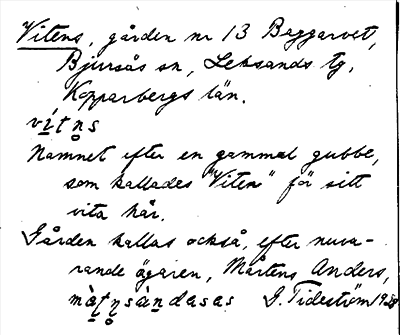 Vitens, gården nr 13 Baggarvet,
Bjursås sn, Leksands tg,
Kopparbergs län.
vi̱tn̥s
Namnet efter en gammal gubbe,
som kallades "Viten" för sitt
vita hår.
Gården kallas också, efter nuva-
rande ägaren, Mårtens Anders,
mà̱tn̥sàndasas G. Tideström 1928